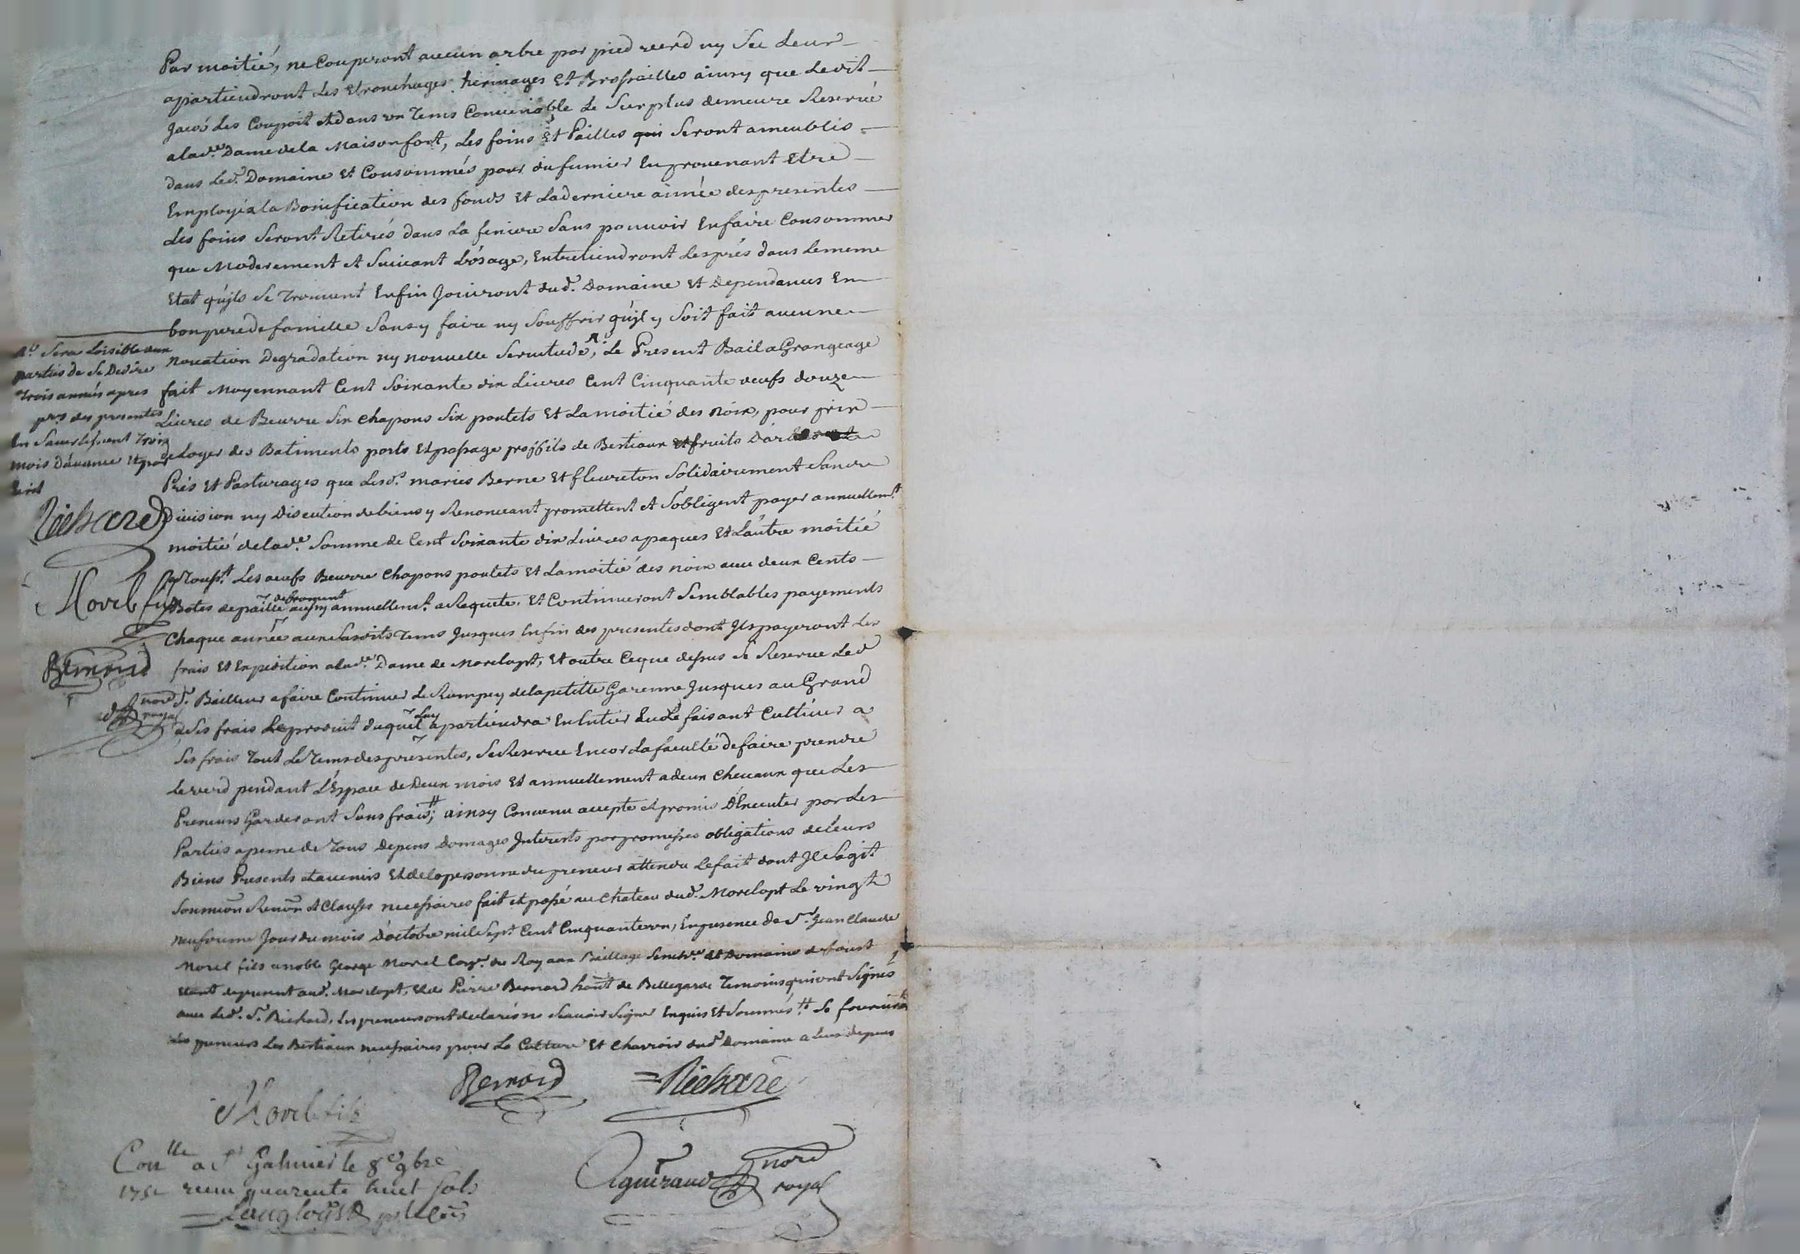 Par moitié, ne Couperont aucun arbre par pied verd ny Sec Leur
apartiendront Les Etronchages herinages Et Brossailles ainsy que Ledit
Les Coupoit Et dans un Tems Convenable Le Surplus demeure Reservé
a lad.e Dame de la Maisonfort, Les foins Et Pailles qui Seront ameublis
dans Led. Domaine Et Consommés pour du fumier En provenant Etre
Employé a la Bonification des fonds Et La derniere année des presentes
Les foins Seront Retirés dans La feniere Sans pouvoir En faire Consommer
que Moderement et Suivant L'usage, Entretiendront Les prés dans Le meme
Etat qu'ils Se trouvent Enfin Jouiront dud. Domaine Et Dependances En
bon pere de famille Sans y faire ny Souffrir qu'il y Soit fait aucune
novation Degradation ny nouvelle Servitude, Le Present Bail a Grangeage
fait Moyennant Cent Soixante dix Livres Cent Cinquante oeufs douze
Livres de Beurre Six Chapons Six poulets Et La moitié des Noix, pour prix
de Loyer des Batiments ports Et passage proffits de Bestiaux Et fruits
Prés Et Pasturages que Lesd.s mariés Berne et fleureton Solidairement Sans
Division ny Discution de biens y Renoncant promettent et S'obligent payer annuellem.t
moitié de lad.e Somme de Cent Soixante dix Livres a paques Et L'autre moitié
Touss.t Les oeufs Beurre Chapons poulets Et La moitié des noix avec deux Cents
Botes de paille de froment aussy annuellem.t a Requete, Et Continueront Semblables payements
Chaque année auxSusdits tems Jusques Enfin des presentes dont Ils payeront Les
frais Et Expedition a lad.e Dame de Marclopt, Et outre Ceque dessus Se Reserve Led
S.r Bailleur a faire Continuer Le Rompey de la petitte Garenne Jusques au Grand
a Ses frais Le produit duquel Luy apartiendra En Entier En Le faisant Cultiver a
Ses frais Tout Le Tems des presentes, Se Reserve Encor La faculté de faire prendre
Le verd pendant L'Espace de Deux mois Et annuellement a deux Chevaux que Les
Preneurs Garderont Sans frais; ainsy Convenu accepté et promis D'Executer par Les
Parties a peine de Tous Depens Domages Interests par promesses obligations de Leurs
Biens Presents et avenirs Et de la personne du preneur attendu Le fait dont Il S'agit
Soumiõn Renõn et Clauses necessaires fait et passé au Chateau dud. Marclopt Le vingt
neufvieme Jour du mois D'octobre mil Sept Cent Cinquante un, En presence de S.r Jean Claude
Morel fils a noble George Morel Con.er du Roy aux Baillage et Domaine de forest
de present aud. Marclopt, Et de Pierre Bernard de Bellegarde Temoins qui ont Signés
avec Led. S.r Richard, Les preneurs ont declarés ne Scavoir Signer Enquis Et Sommés Se
Les preneurs Les Bestiaux necessaires pour La Culture Et Charroir dud. Domaine a Leurs depens
Sera Loisible aux
parties de Se Dedire
trois années apres
des presentes
En Savertissent Trois
mois D'avance
Richard
Morel fils
Bernard
nor.
royal
Bernard
Richard
Morel fils
Con.lle a S.t Galmier le 8.e 9bre
1751 receu quarente huit sols
Aguiraud nore
royal